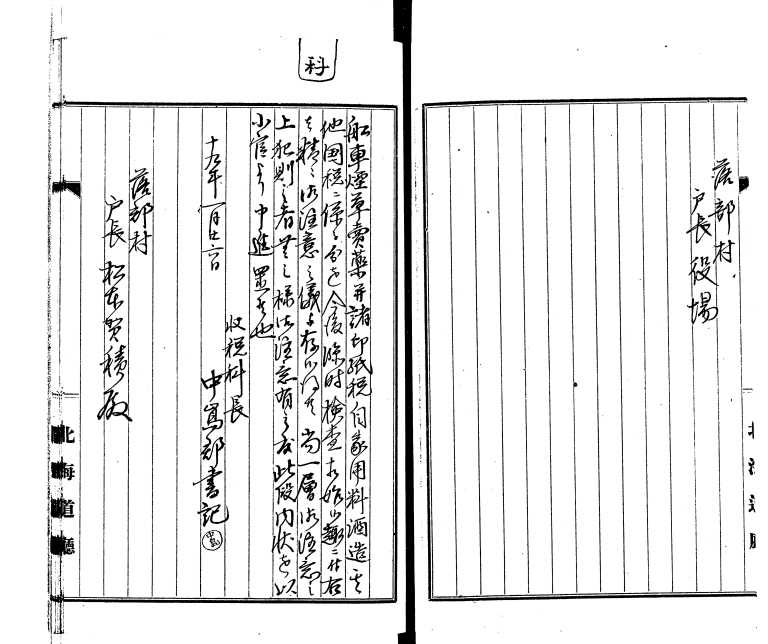 落部村
戸長役場
科
船車煙草賣薬并諸印紙税自家用料酒造其
他国税ニ係ル分之今後臨時検査相始候趣ニ付右
ハ精々御注意之儀ト存候得共尚一層御注意之
上犯則之者無之様御注意有之度此段内状を以
小官より申進置候也
十九年一月廿六日
収税科長
中嶌郡書記
落部村
戸長 松本賀積殿
北海道廳